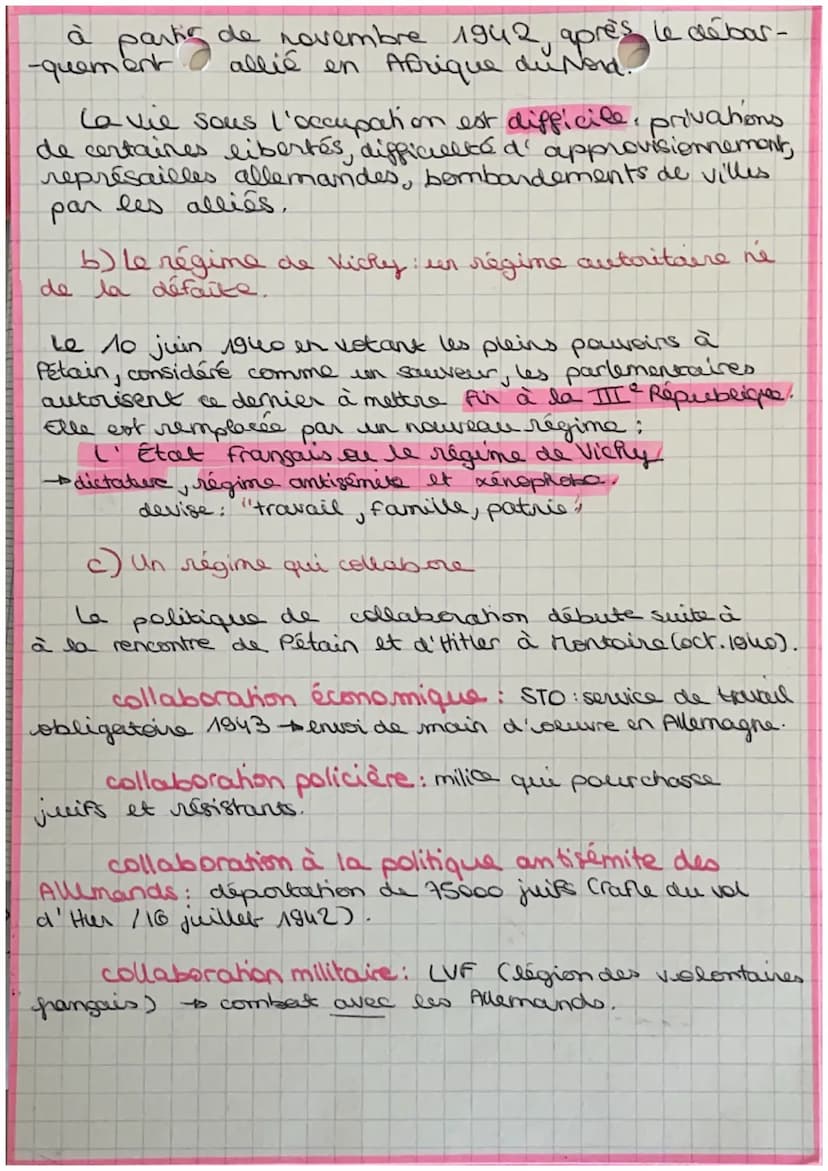 à partir de novembre 1942, après le débar-
-quement allié en Afrique du Nord.
La vie sous l'occupation est difficile : privations
de certaines libertés, difficulté d'approvisionnement,
représailles allemandes, bombardements de villes
par les alliés.
b) Le régime de Vichy : un régime autoritaire né
de la défaite.
Le 10 juin 1940 en votant les pleins pouvoirs à
Pétain, considéré comme un sauveur, les parlementaires
autorisent ce dernier à mettre fin à la IIIe République.
Elle est remplacée par un nouveau régime :
L'État français ou le régime de Vichy
→ dictature, régime antisémite et xénophobe.
devise : "travail, famille, patrie"
c) Un régime qui collabore
La politique de collaboration débute suite à
à la rencontre de Pétain et d'Hitler à Montoire (oct. 1940).
collaboration économique : STO : service de travail
obligatoire 1943 → envoi de main d'oeuvre en Allemagne.
collaboration policière : milice qui pourchasse
juifs et résistants.
collaboration à la politique antisémite des
Allemands : déportation de 75000 juifs (rafle du vel
d'Hiv / 16 juillet 1942).
collaboration militaire : LVF (légion des volontaires
français) → combat avec les Allemands.